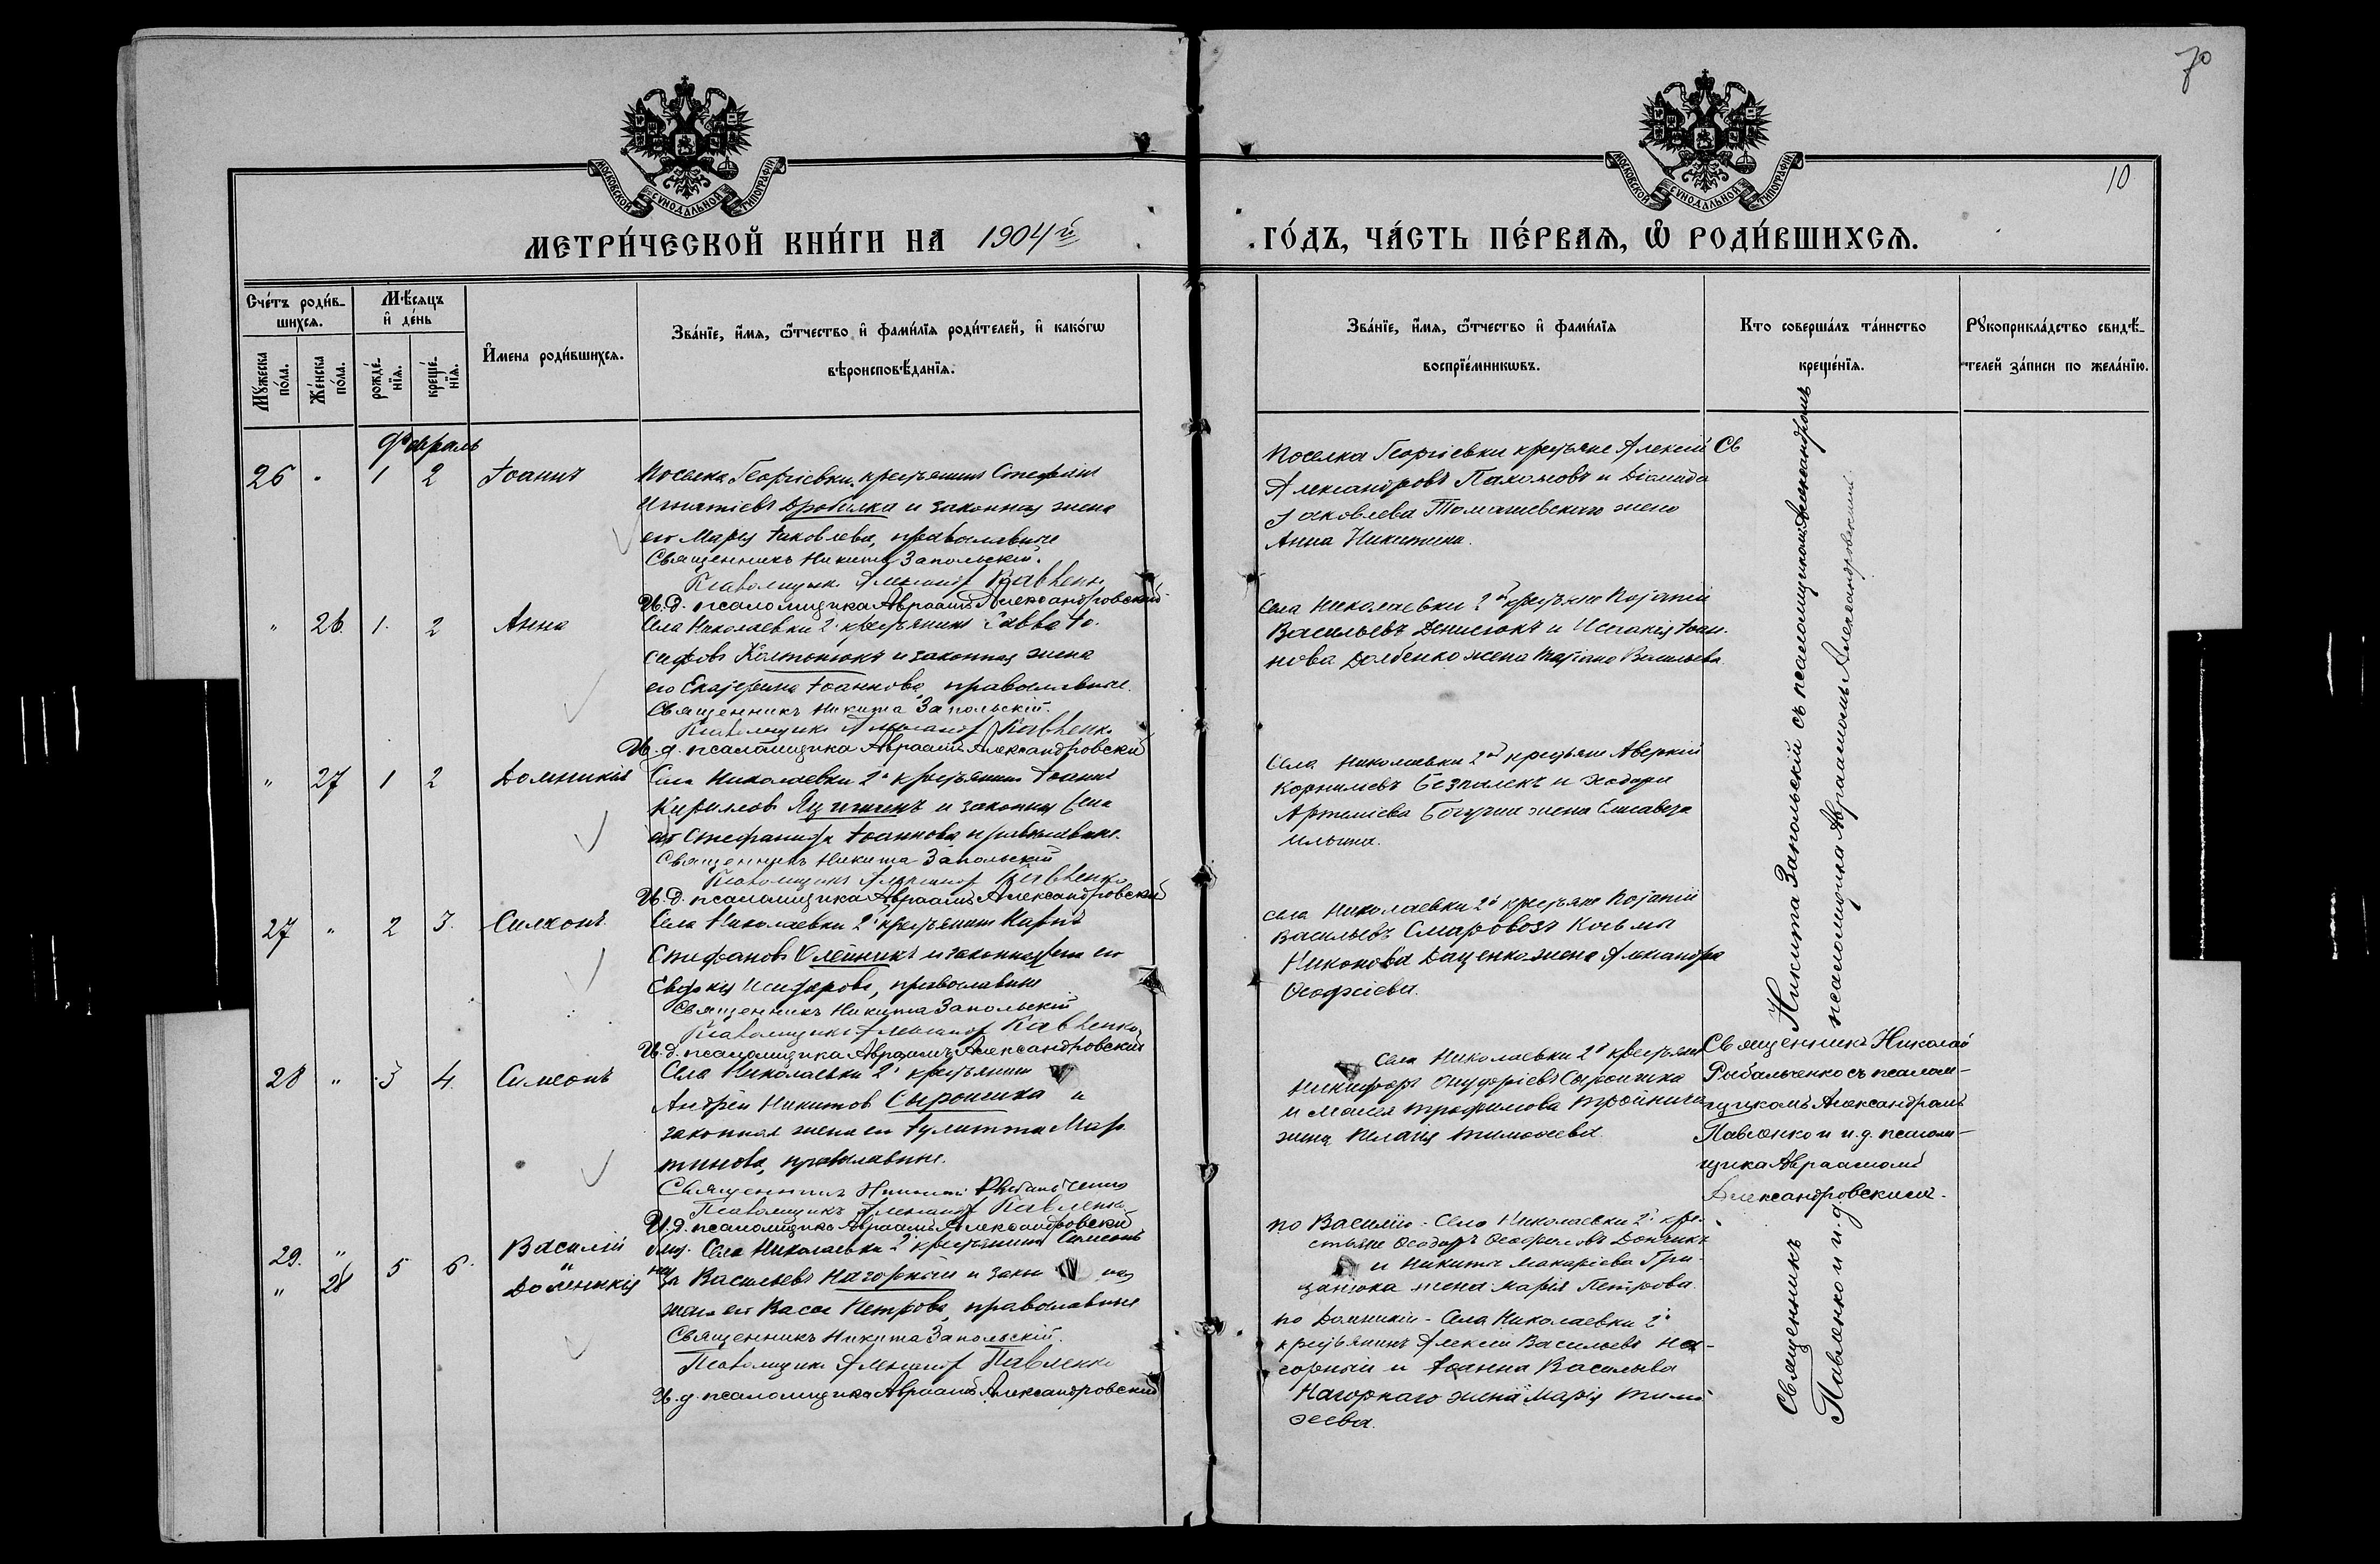 70
10
МОСКОВСКОЙ СѴНОДАЛЬНОЙ ТИПОГРАФІИ
МОСКОВСКОЙ СѴНОДАЛЬНОЙ ТИПОГРАФІИ
МЕТРИ́ЧЕСКОЙ КНИ́ГИ НА 1904й
ГО́ДЪ, ЧА́СТЬ ПЕ́РВАѦ, Ѡ҆ РОДИ́ВШИХСѦ.
Сче́тъ роди́в-
шихсѧ.
Мꙋ́жеска по́ла.
Же́нска по́ла.
Мѣ́сѧцъ
и҆ де́нь
рожде́-
нїѧ.
креще́-
нїѧ.
И҆мена роди́вшихсѧ.
Зва́нїе, и҆́мѧ, ѻ҆́тчество и҆ фами́лїѧ роди́телей, и҆ како́гѡ
вѣроисповѣ́данїѧ.
Зва́нїе, и҆́мѧ, ѻ҆́тчество и҆ фами́лїѧ
воспрїе́мникѡвъ.
Кто соверша́лъ та́инство
креще́нїѧ.
Рꙋкоприкла́дство свидѣ́-
телей за́писи по жела́нїю.
Февраль
26 " 1 2 Іоаннъ
Поселка Георгіевки, крестьянинъ Стефанъ
Игнатіевъ Дробилка и законная жена
его Марія Іаковлева, православные
Священникъ Никита Запольскій.
Псаломщикъ Александръ Павленко
И.д. псаломщика Авраамъ Александровскій
Поселка Георгіевки крестьяне Алексій
Александровъ Пахомовъ и Діомида
Іаковлева Томашевскаго жена
Анна Никитина.
Св
" 26. 1. 2 Анна
Села Николаевки 2й крестьянинъ Савва Іо-
сифовъ и законная жена
его Екатерина Іоаннова, православные.
Священникъ Никита Запольскій.
Псаломщикъ Александръ Павленко
И.д. псаломщика Авраамъ Александровскій
Села Николаевки 2й крестьяне Потапій
Васильевъ Денисюкъ и Исаакія Іоан-
нова Долбенко жена Татіана Васильева.
" 27 1 2 Домникія
Села Николаевки 2й крестьянинъ Іоаннъ
Кириловъ и законная жена
его Стефанида Іоаннова, православные.
Священникъ Никита Запольскій
Псаломщикъ Александръ Павленко
И.д. псаломщика Авраамъ Александровскій
Села Николаевки 2й крестьяне Аверкій
Корниліевъ Безпалекъ и Ѳеодора
Артеміева жена Елисавета
Ильина.
27 " 2 3. Симеонъ.
Села Николаевки 2й крестьянинъ Карпъ
Стефановъ Олейникъ и законная жена его
Евдокія Исидорова, православные
Священникъ Никита Запольскій
Псаломщикъ Александръ Павленко
И.д. псаломщика Авраамъ Александровскій
Села Николаевки 2й крестьяне Потапій
Васильевъ Смаровозъ Косьма
Никонова Даценко жена Александра
Ѳеофиліева.
28 " 3 4. Симеонъ
Села Николаевки 2й крестьянинъ
Андрей Никитовъ Сыроишка и
законная жена его Іулитта Мар-
тинова, православные.
Священникъ Николай Рыбальченко
Псаломщикъ Александръ Павленко
И.д. псаломщика Авраамъ Александровскій
Села Николаевки 2й крестьяне
Никифоръ Онуфріевъ Сыроишка
и Моисея Трофимова
жена Пелагія Тимоѳеева.
Священникъ Николай
Рыбальченко съ псалом-
щикомъ Александромъ
Павленко и и.д. псалом-
щика Авраамомъ
Александровскимъ.
29. " 5 6. Василій
" 28 Домникія
близ. Села Николаевки 2й крестьянинъ Симеонъ
нец. Васильевъ Нагорный и закон ная
жена его Васса Петрова, православные
Священникъ Никита Запольскій.
Псаломщикъ Александръ Павленко
И.д. псаломщика Авраамъ Александровскій
по Василію - Села Николаевки 2й кре-
стьяне Ѳеодоръ Ѳеофиловъ Дончикъ
и Никита Макаріева Гри-
цанюка жена Марія Петрова.
по Домникіи - Села Николаевки 2й
крестьянинъ Алексій Васильевъ На-
горный и Іоанна Васильева
Нагорнаго жена Марія Тимо-
ѳеева.
Священникъ Никита Запольскій съ псаломщикомъ Александромъ
Павленко и и.д. псаломщика Авраамомъ Александровскимъ.